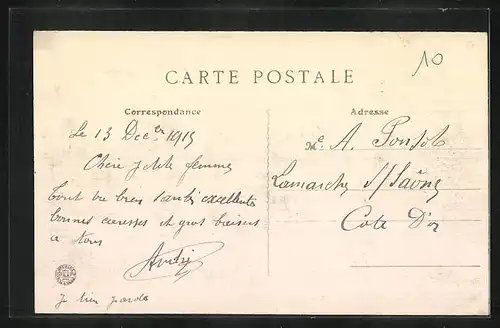 10
CARTE POSTALE
Correspondance
Adresse
Le 13 Dec 1915
Chère petite femme
tout va bien santé excellente
bonnes caresses et gros baisers
a tous
André
Je bien
Me A. Ponsot
Lamarche s/Saône
Cote D'or